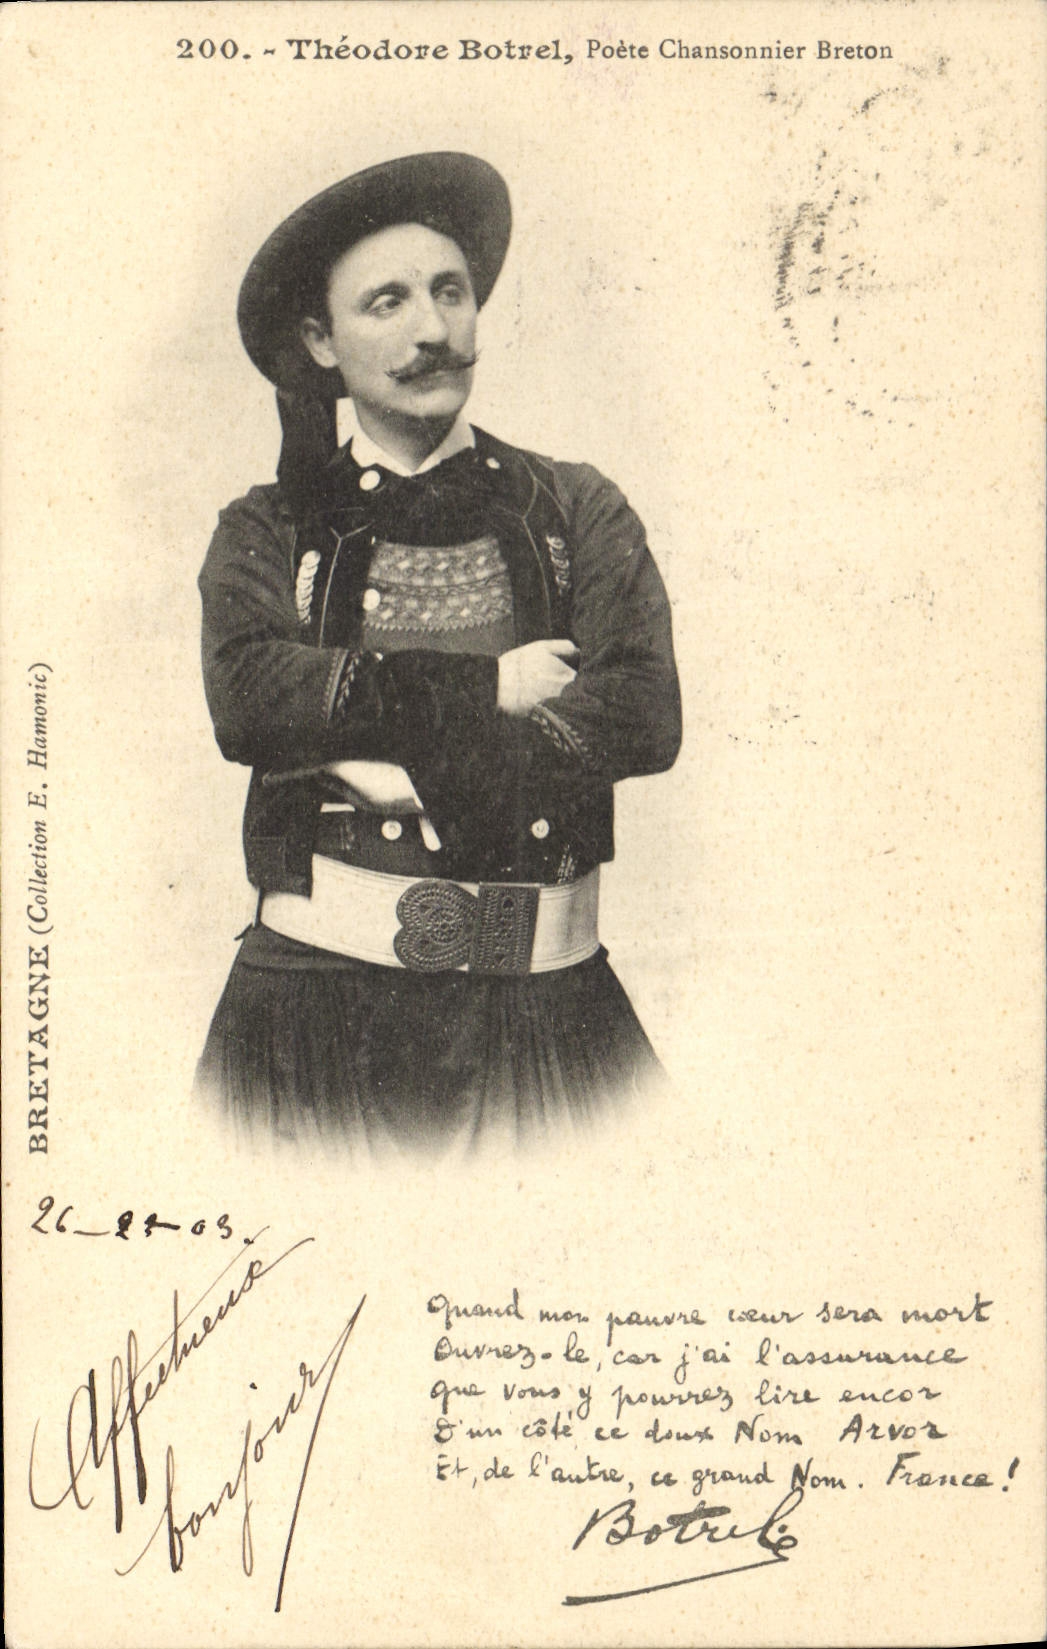 200. - Théodore Botrel, Poète Chansonnier Breton
BRETAGNE (Collection E. Hamonic)
26 - 03.
Affectueux
bonjour
Quand mon pauvre cœur sera mort
Ouvrez-le, car j'ai l'assurance
que vous y pourrez lire encor
D'un côté, ce doux Nom Arvor
Et, de l'autre, ce grand Nom. France !
Botrel